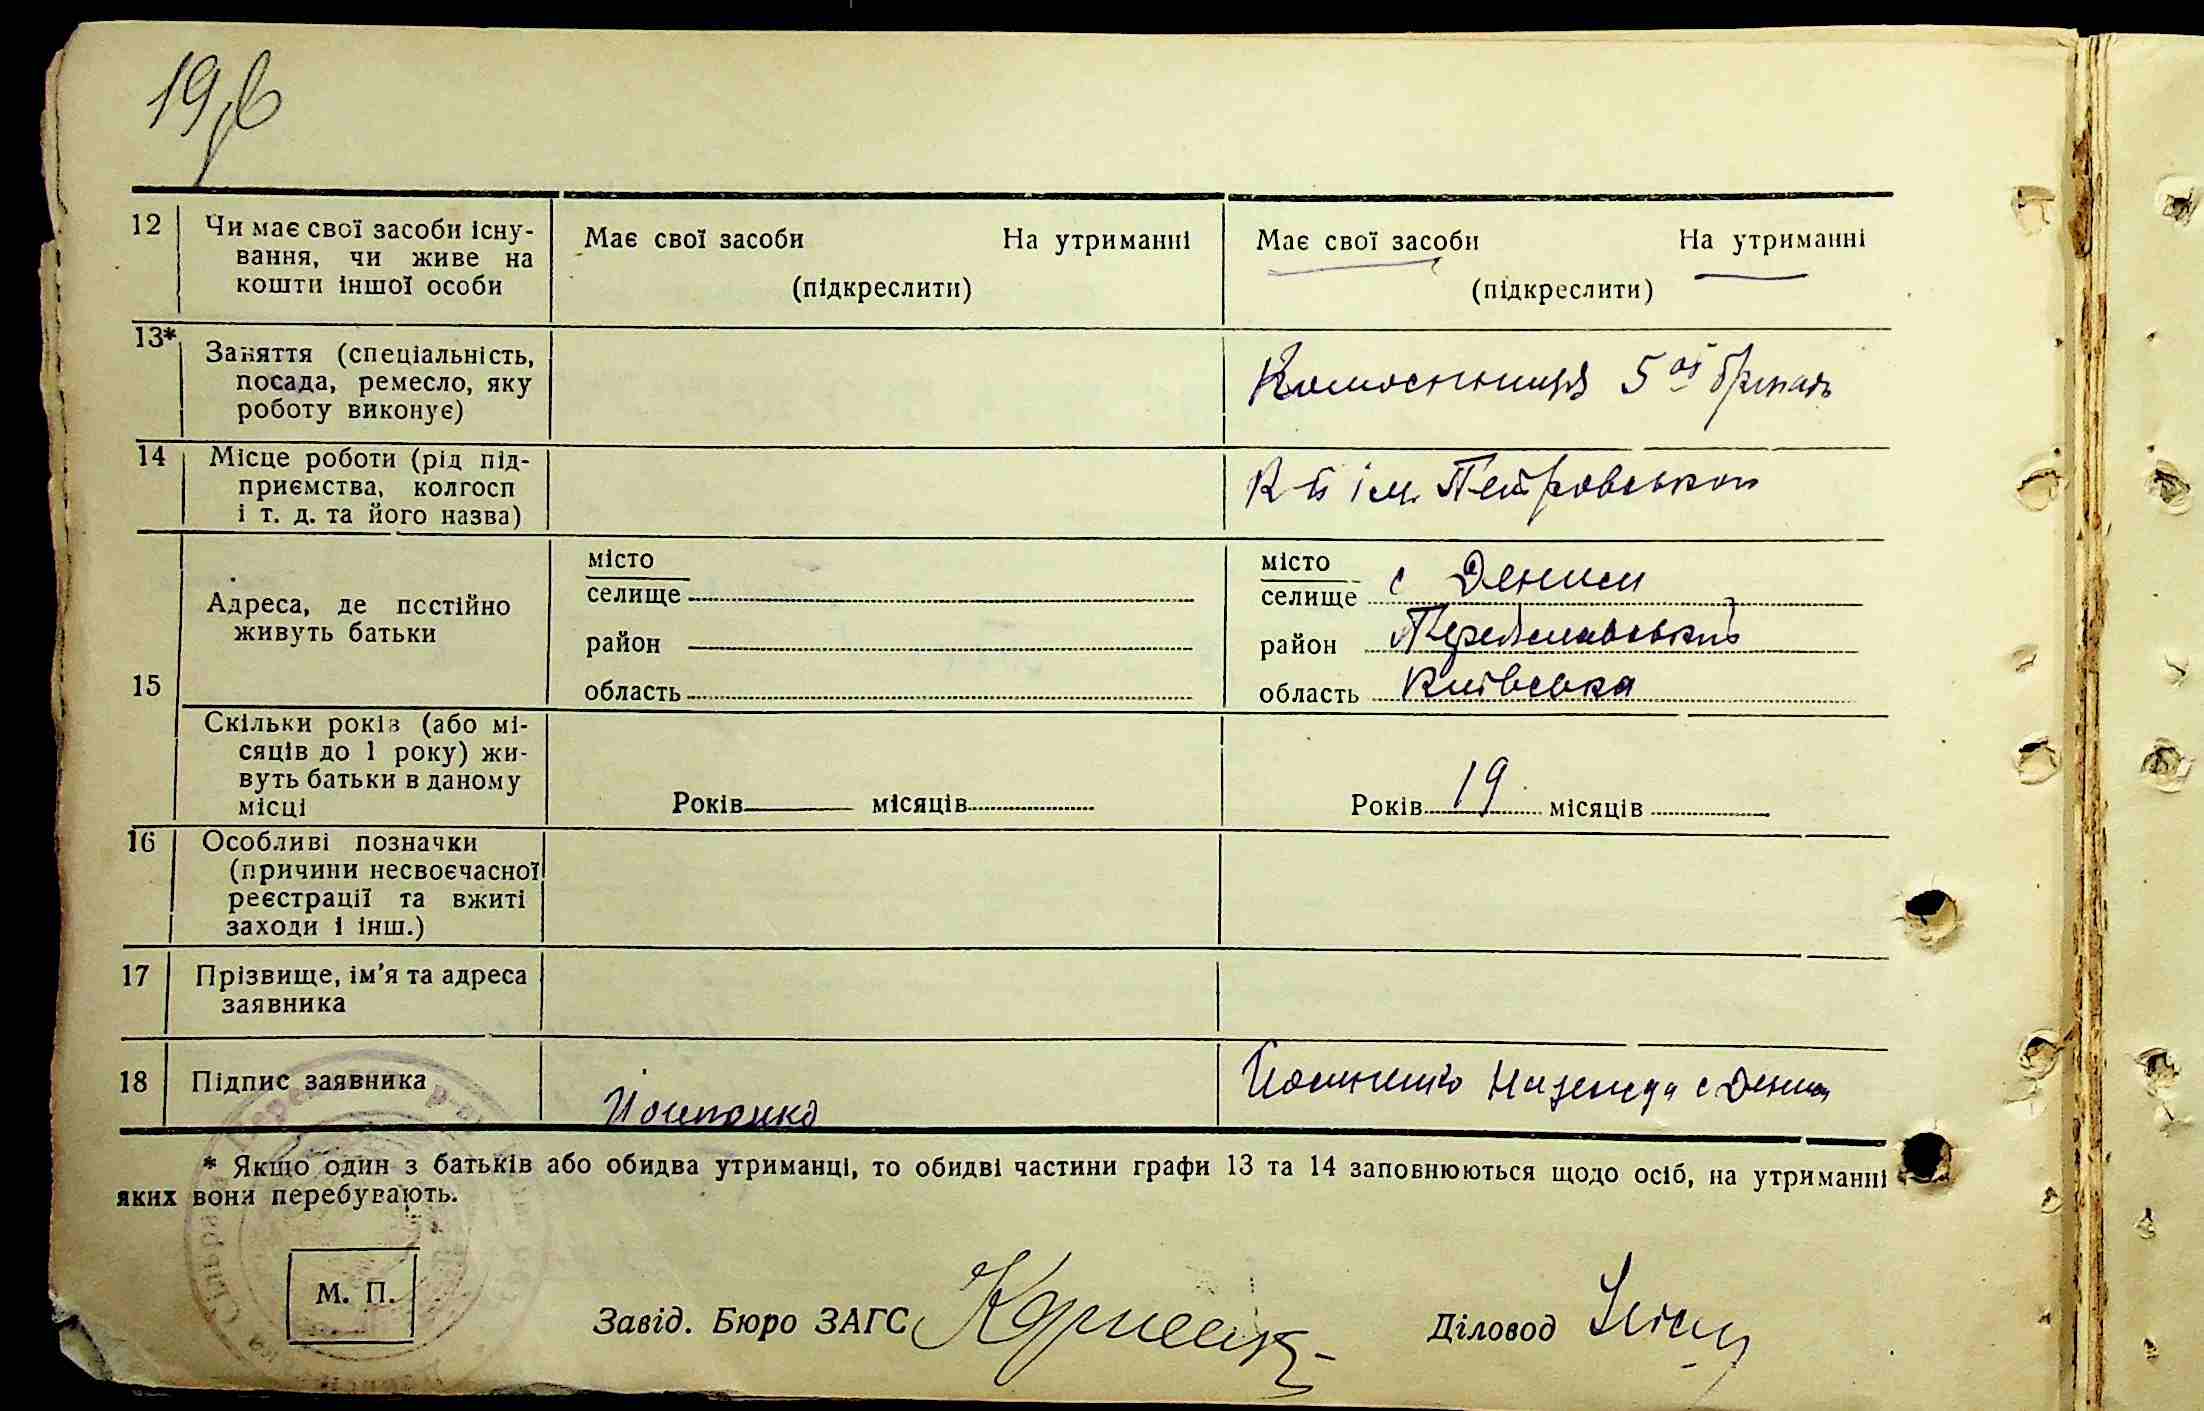 19
12 Чи має свої засоби існу-
вання, чи живе на
кошти іншої особи
Має свої засоби На утриманні
(підкреслити)
Має свої засоби На утриманні
(підкреслити)
13* Заняття (спеціальність,
посада, ремесло, яку
роботу виконує)
5ої
14 Місце роботи (рід під-
приємства, колгосп
і т. д. та його назва)
ім. Петровського
15 Адреса, де постійно
живуть батьки
місто
селище
район
область
місто
селище с Дениси
район Переяславський
область Київська
Скільки років (або мі-
сяців до 1 року) жи-
вуть батьки в даному
місці
Років місяців
Років 19 місяців
16 Особливі позначки
(причини несвоєчасної
реєстрації та вжиті
заходи і інш.)
17 Прізвище, ім'я та адреса
заявника
18 Підпис заявника
с Дениси
* Якщо один з батьків або обидва утриманці, то обидві частини графи 13 та 14 заповнюються щодо осіб, на утриманні
яких вони перебувають.
М. П.
Завід. Бюро ЗАГС
Діловод